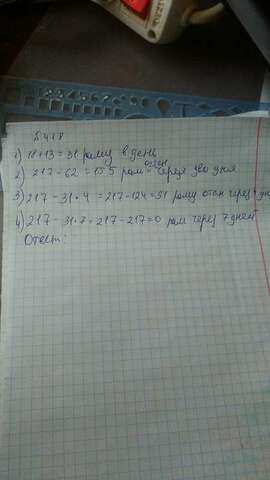 № 418
1) 18+13=31 раму в день
2) 217-62=155 рам остан через два дня
3) 217-31·4=217-124=91 раму остан через 4 дн
4) 217-31·7=217-217=0 рам через 7 дней
Ответ: